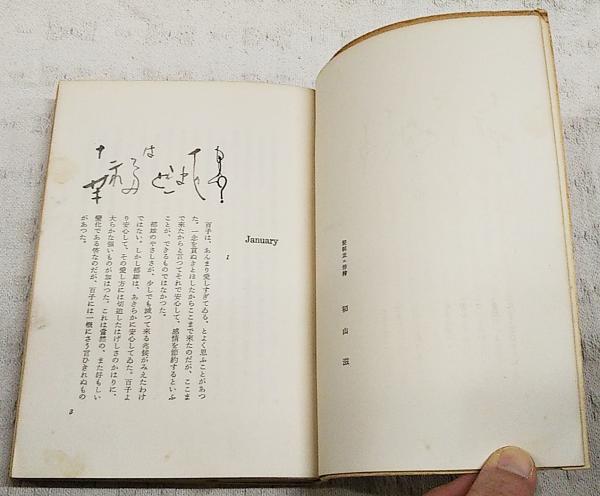 裝幀並に揷繪
初山滋
January
1
百子は、あんまり愛しすぎてゐる、とよく思ふことがあつ
た。一念を貫ぬきとほしたからここまで来たのだが、ここま
で来たからと言つてそれで安心して、感情を節約するといふ
ことが、できるものではなかつた。
都雄のやさしさが、少しでも減つて来る兆候がみえたわけ
ではない。しかし都雄は、あきらかに安心してゐた。百子よ
り安心して、その愛し方には切迫したはげしさのかはりに、
大らかな强いものが加はつた。これは當然の、また好もしい
變化である筈なのだが、百子には一槪にさう言ひきれぬもの
があつた。
3